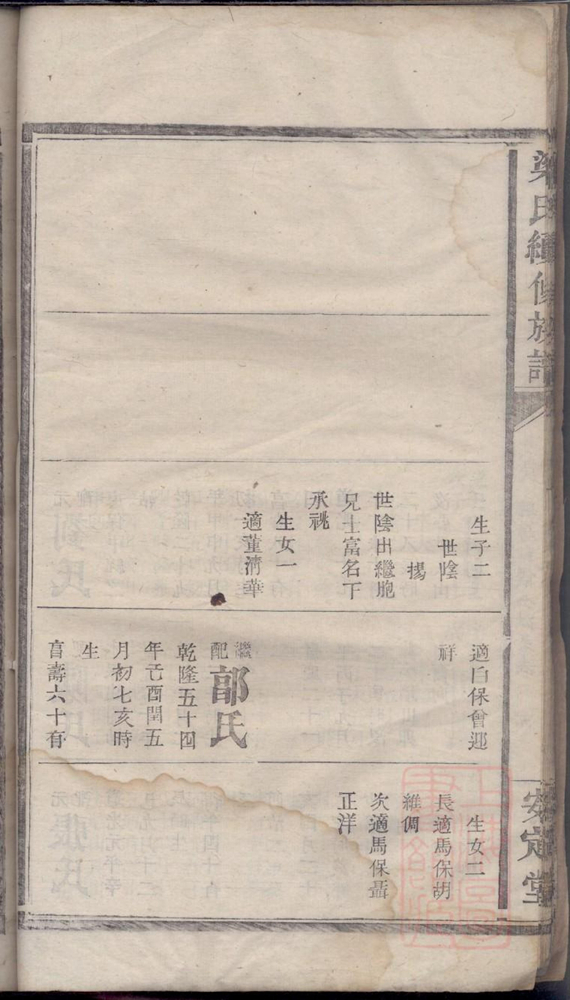 梁氏續修族譜
安定堂
生子二
世陰
揚
世陰出繼胞
兄士富名下
承祧
生女一
適董清華
適白保會迎
祥
繼配郭氏
乾隆五十四
年己酉閏五
月初七亥時
生
享壽六十有
生女二
長適馬保胡
維倜
次適馬保聶
正洋